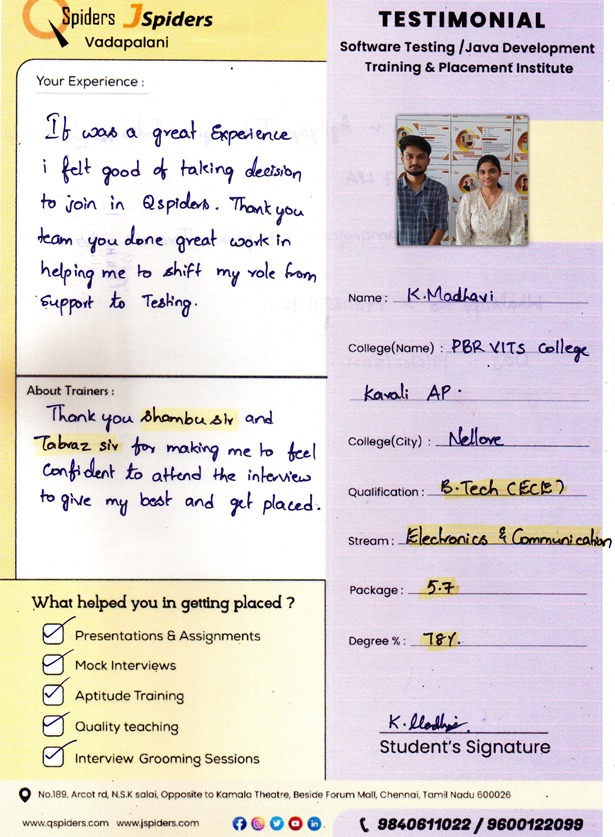 QSpiders JSpiders
Vadapalani
Your Experience :
It was a great Experience
i felt good of taking decision
to join in Qspiders. Thank you
team you done great work in
helping me to shift my role from
Support to Testing.
About Trainers :
Thank you Shambu sir and
Tabraz sir for making me to feel
Confident to attend the interview
to give my best and get placed.
What helped you in getting placed ?
Presentations & Assignments
Mock Interviews
Aptitude Training
Quality teaching
Interview Grooming Sessions
TESTIMONIAL
Software Testing /Java Development
Training & Placement Institute
Name : K.Madhavi
College(Name) : PBR VITS College
Kavali AP.
College(City) : Nellore
Qualification : B.Tech (ECE)
Stream : Electronics & Communication
Package : 5.7
Degree % : 78%.
K. Madhavi
Student's Signature
No.189, Arcot rd, N.S.K salai, Opposite to Kamala Theatre, Beside Forum Mall, Chennai, Tamil Nadu 600026
www.qspiders.com www.jspiders.com
9840611022 / 9600122099